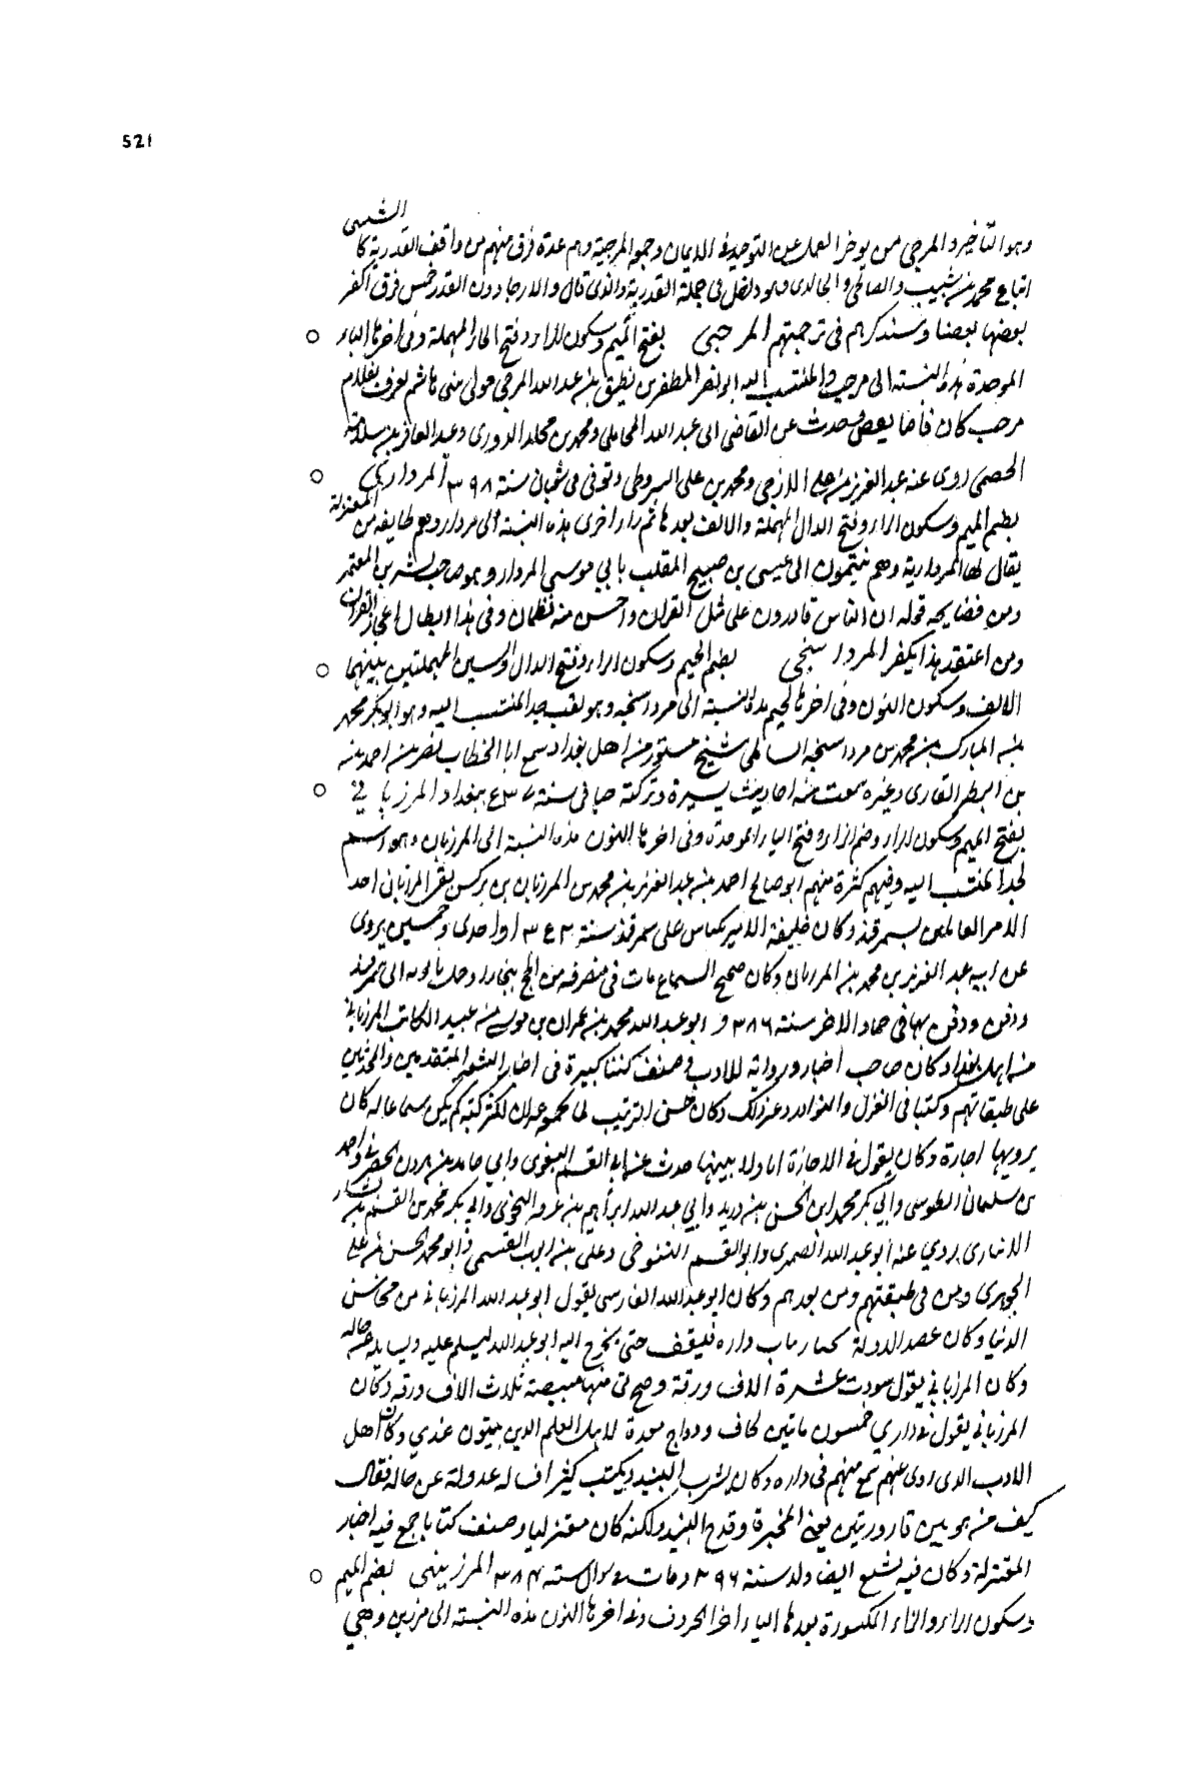 521
الشبيبى
وهو التأخير والمرجى من يوخر العمل عن التوحيد فى الايمان وجمع المرجية وهم عدة فرق منهم من وافق القدرية كا
اتباع محمد بن شبيب والصالحى والخالدى وهو داخل فى جملة القدرية والذى قال والارجاء دون القدر خمس فرق اكفر
بعضها بعضا وسنذكرهم فى ترجمتهم المرحبى بفتح الميم وسكون الراء وفتح الحاء المهملة وفى اخرها الباء
الموحدة هذه النسبة الى مرحب والمنتسب اليه ابو نصر المظفر بن نظيف بن عبد الله المرحبى مولى بنى هاشم يعرف بغلام
مرحب كان قاضا يعض حدث عن القاضى ابى عبد الله المحاملى ومحمد بن مخلد الدورى وعبد الغافر بن سلامة
الحمصى روى عنه عبد العزيز بن على الازجى ومحمد بن على البروطى وتوفى فى شعبان سنة ٣٩٨ المردارى
بضم الميم وسكون الراء وفتح الدال المهملة والالف بعدها ثم راء اخرى هذه النسبة الى مردار وهم طايفة من المعتزلة
يقال لها المردارية وهم ينتمون الى عيسى بن صبيح الملقب بابي موسى المردار وهو صاحب بشر بن المعتمر
ومن فضايحه قوله ان الناس قادرون على مثل القران واحسن منه نظما وفى هذا ابطال اعجاز القران
ومن اعتقد هذا يكفر المرداسنجى بضم الميم وسكون الراء وفتح الدال والسين المهملتين بينهما
الالف وسكون النون وفى اخرها الجيم هذه النسبة الى مرداسنجه وهو لقب جد المنتسب اليه وهو ابو بكر محمد
بن المبارك بن محمد بن مرداسنجه السلامى شيخ مستور من اهل بغداد سمع ابا الخطاب نصر بن احمد بن
بن البطر القارى وغيره سمعت منه احاديث يسيرة وتركته حيا فى سنة ٥٣٧ ببغداد المرزبانى
بفتح الميم وسكون الراء وضم الزاء وفتح الباء الموحدة وفى اخرها النون هذه النسبة الى المرزبان وهو اسم
لجد المنتسب اليه وفيهم كثرة منهم ابو صالح احمد بن عبد العزيز بن محمد بن المرزبان بن المرزبانى احد
الامر العالمين بسمرقند وكان خليفة الامير على سمرقند سنة ٣٤٣ او احدى وخمسين يروى
عن ابيه عبد العزيز بن محمد بن المرزبان وكان صحيح السماع مات فى منصرفه من الحج ببخارا وحمل تابوته الى سمرقند
ودفن ودفن بها فى جماد الاخر سنة ٣٨٦ و ابو عبد الله محمد بن عمران بن موسى بن عبيد الكاتب المرزبانى
من اهل بغداد كان صاحب اخبار ورواية للادب وصنف كتبا كبيرة فى اخبار الشعراء المتقدمين والمحدثين
على طبقاتهم وكتبا فى الغزل والنوادر وغير ذلك وكان حسن الترتيب لما جمعه لكثر كتبه لم يكن سماعا له كان
يرويها اجازة وكان يقول فى الاجازة انا ولا يبينها حدث عن ابى القسم البغوى وابى حامد بن هرون الحضرمى واحمد
بن سلمان الطوسى وابى بكر محمد ابن الحسن بن دريد وابى عبد الله ابراهيم بن عرفه النحوى وابى بكر محمد بن القسم بن بشار
الانبارى يروى عنه ابو عبد الله الصمرى وابو القسم التنوخى وعلى بن ايوب القمى وابو محمد الحسن بن على
الجوهرى ومن فى طبقتهم ومن بعدهم وكان ابو عبد الله الفارسى يقول ابو عبد الله المرزبانى من محاسن
الدنيا وكان عضد الدولة يجتاز بباب داره فيقف حتى يخرج اليه ابو عبد الله ليسلم عليه ويسايله عن حاله
وكان المرزبانى يقول سودت عشرة الاف ورقة وصح لى منها مبيضة ثلاث الاف ورقه وكان
المرزبانى يقول فى دارى خمسون مابين لحاف ودواج معدة لاهل العلم الذين يبيتون عندى وكان اهل
الادب الذى روى عنهم سمع منهم فى داره وكان يشرب النبيذ ويكتب كثيرا فساله عضد الدولة عن حاله فقال
كيف من هو بين قارورتين يعنى المحبرة وقدح النبيذ ولكنه كان معتزليا وصنف كتابا جمع فيه اخبار
المعتزلة وكان فيه تشيع ايضا ولد سنة ٢٩٦ ومات شوال سنة ٣٨٤ المرزبنى بضم الميم
وسكون الراء والزاء المكسورة بعدها الياء اخر الحروف وفى اخرها النون هذه النسبة الى مرزبن وهي